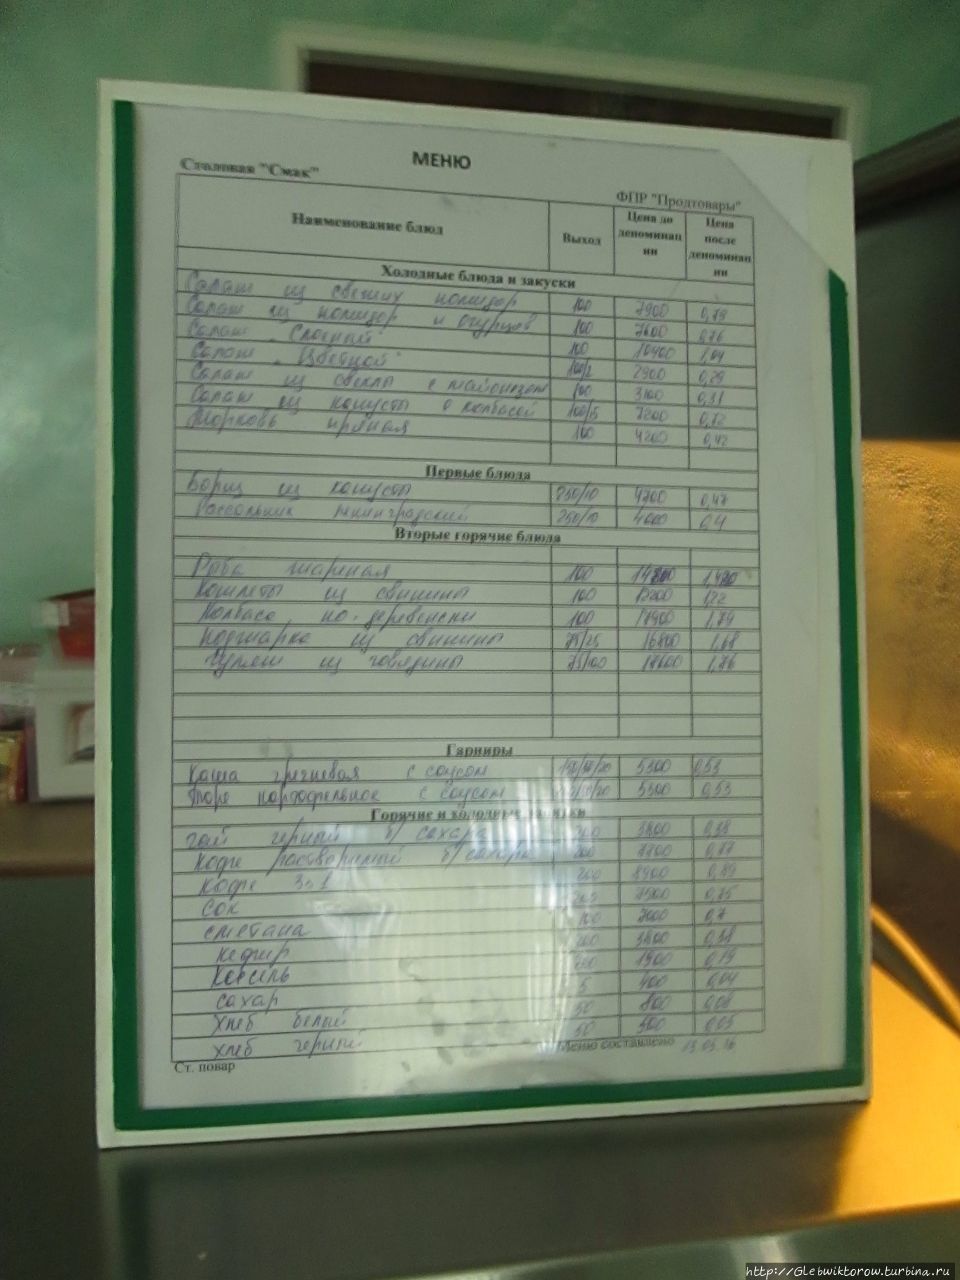 МЕНЮ
Столовая "Смак"
ФПР "Продтовары"
Наименование блюд Выход Цена до деноминации Цена после деноминации
Холодные блюда и закуски
Салат из свежих помидор 100 7900 0,79
Салат из помидор и огурцов 100 7600 0,76
Салат "Слоеный" 100 10400 1,04
Салат "Цветной" 2900 0,29
Салат из свеклы с майонезом 100 3100 0,31
Салат из капусты с колбасой 100/15 7200 0,72
Морковь пряная 100 4200 0,42
Первые блюда
Борщ из капусты 250/10 4700 0,47
Рассольник ленинградский 250/10 4000 0,4
Вторые горячие блюда
Рыба жареная 100 14800 1,480
Котлеты из свинины 100
Колбаса по-деревенски 100 17900 1,79
Поджарка из свинины 75/25 16800 1,68
Гуляш из говядины 75/100 17600 1,76
Гарниры
Каша гречневая с соусом 5300 0,53
Пюре картофельное с соусом 5300 0,53
Горячие и холодные напитки
Чай черный б/сахара 200 3800 0,38
Кофе растворимый б/сахара 200 0,77
Кофе 3в1 200 8900 0,89
сок 7500 0,75
сметана 100 7000 0,7
кефир 200 3800 0,38
кисель 200 1900 0,19
сахар 5 400 0,04
хлеб белый 50 800 0,08
хлеб черный 50 500 0,05
Меню составлено
Ст. повар
http://Glebwiktorow.turbina.ru